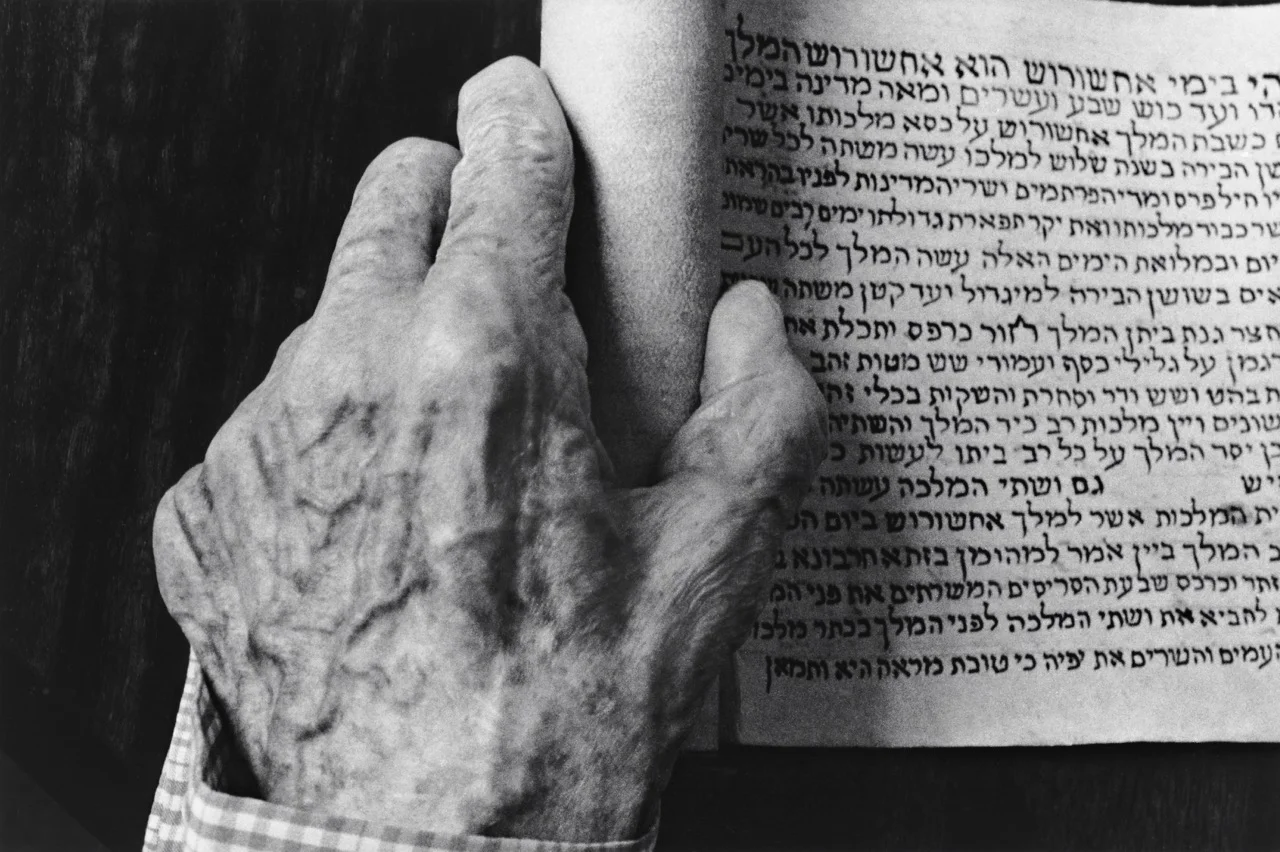 הי בימי אחשורוש הוא אחשורוש המלך
דו ועד כוש שבע ועשרים ומאה מדינה בימים
כשבת המלך אחשורוש על כסא מלכותו אשר
שן הבירה בשנת שלוש למלכו עשה משתה לכל שריו
חיל פרס ומדי הפרתמים ושרי המדינות לפניו בהראת
שר כבוד מלכותו ואת יקר תפארת גדולתו ימים רבים שמונ
יום ובמלואת הימים האלה עשה המלך לכל העם
אים בשושן הבירה למיגדול ועד קטן משתה
חצר גנת ביתן המלך חור כרפס ותכלת אח
רגמן על גלילי כסף ועמודי שש מטות זהב
ת בהט ושש ודר וסחרת והשקות בכלי זה
שונים ויין מלכות רב כיד המלך והשתיה
כן יסד המלך על כל רב ביתו לעשות כ
יש גם ושתי המלכה עשתה
ית המלכות אשר למלך אחשורוש ביום ה
ב המלך ביין אמר למהומן בזתא חרבונא ב
זתר וכרכס שבעת הסריסים המשרתים את פני המ
להביא את ושתי המלכה לפני המלך בכתר מלכו
העמים והשרים את יפיה כי טובת מראה היא וימאן